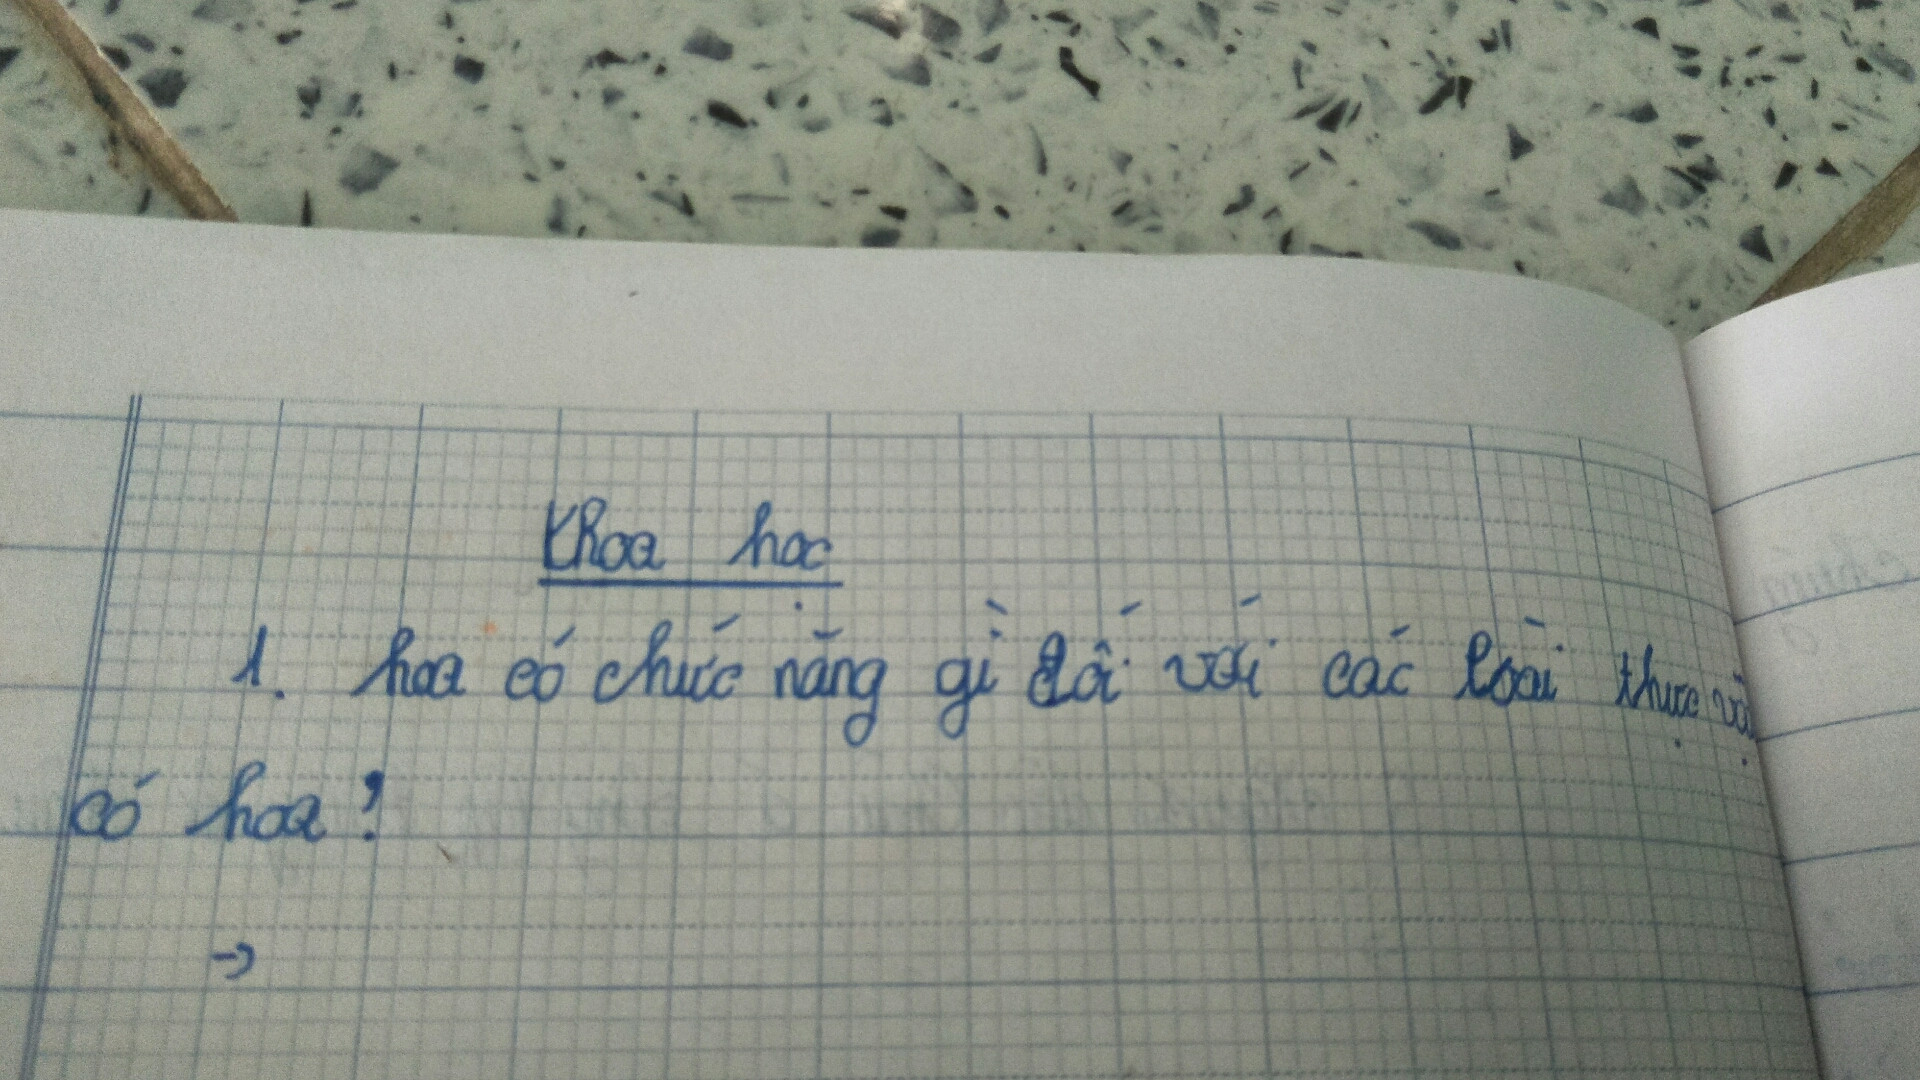 Khoa học
1. hoa có chức năng gì đối với các loài thực vật
có hoa?
→